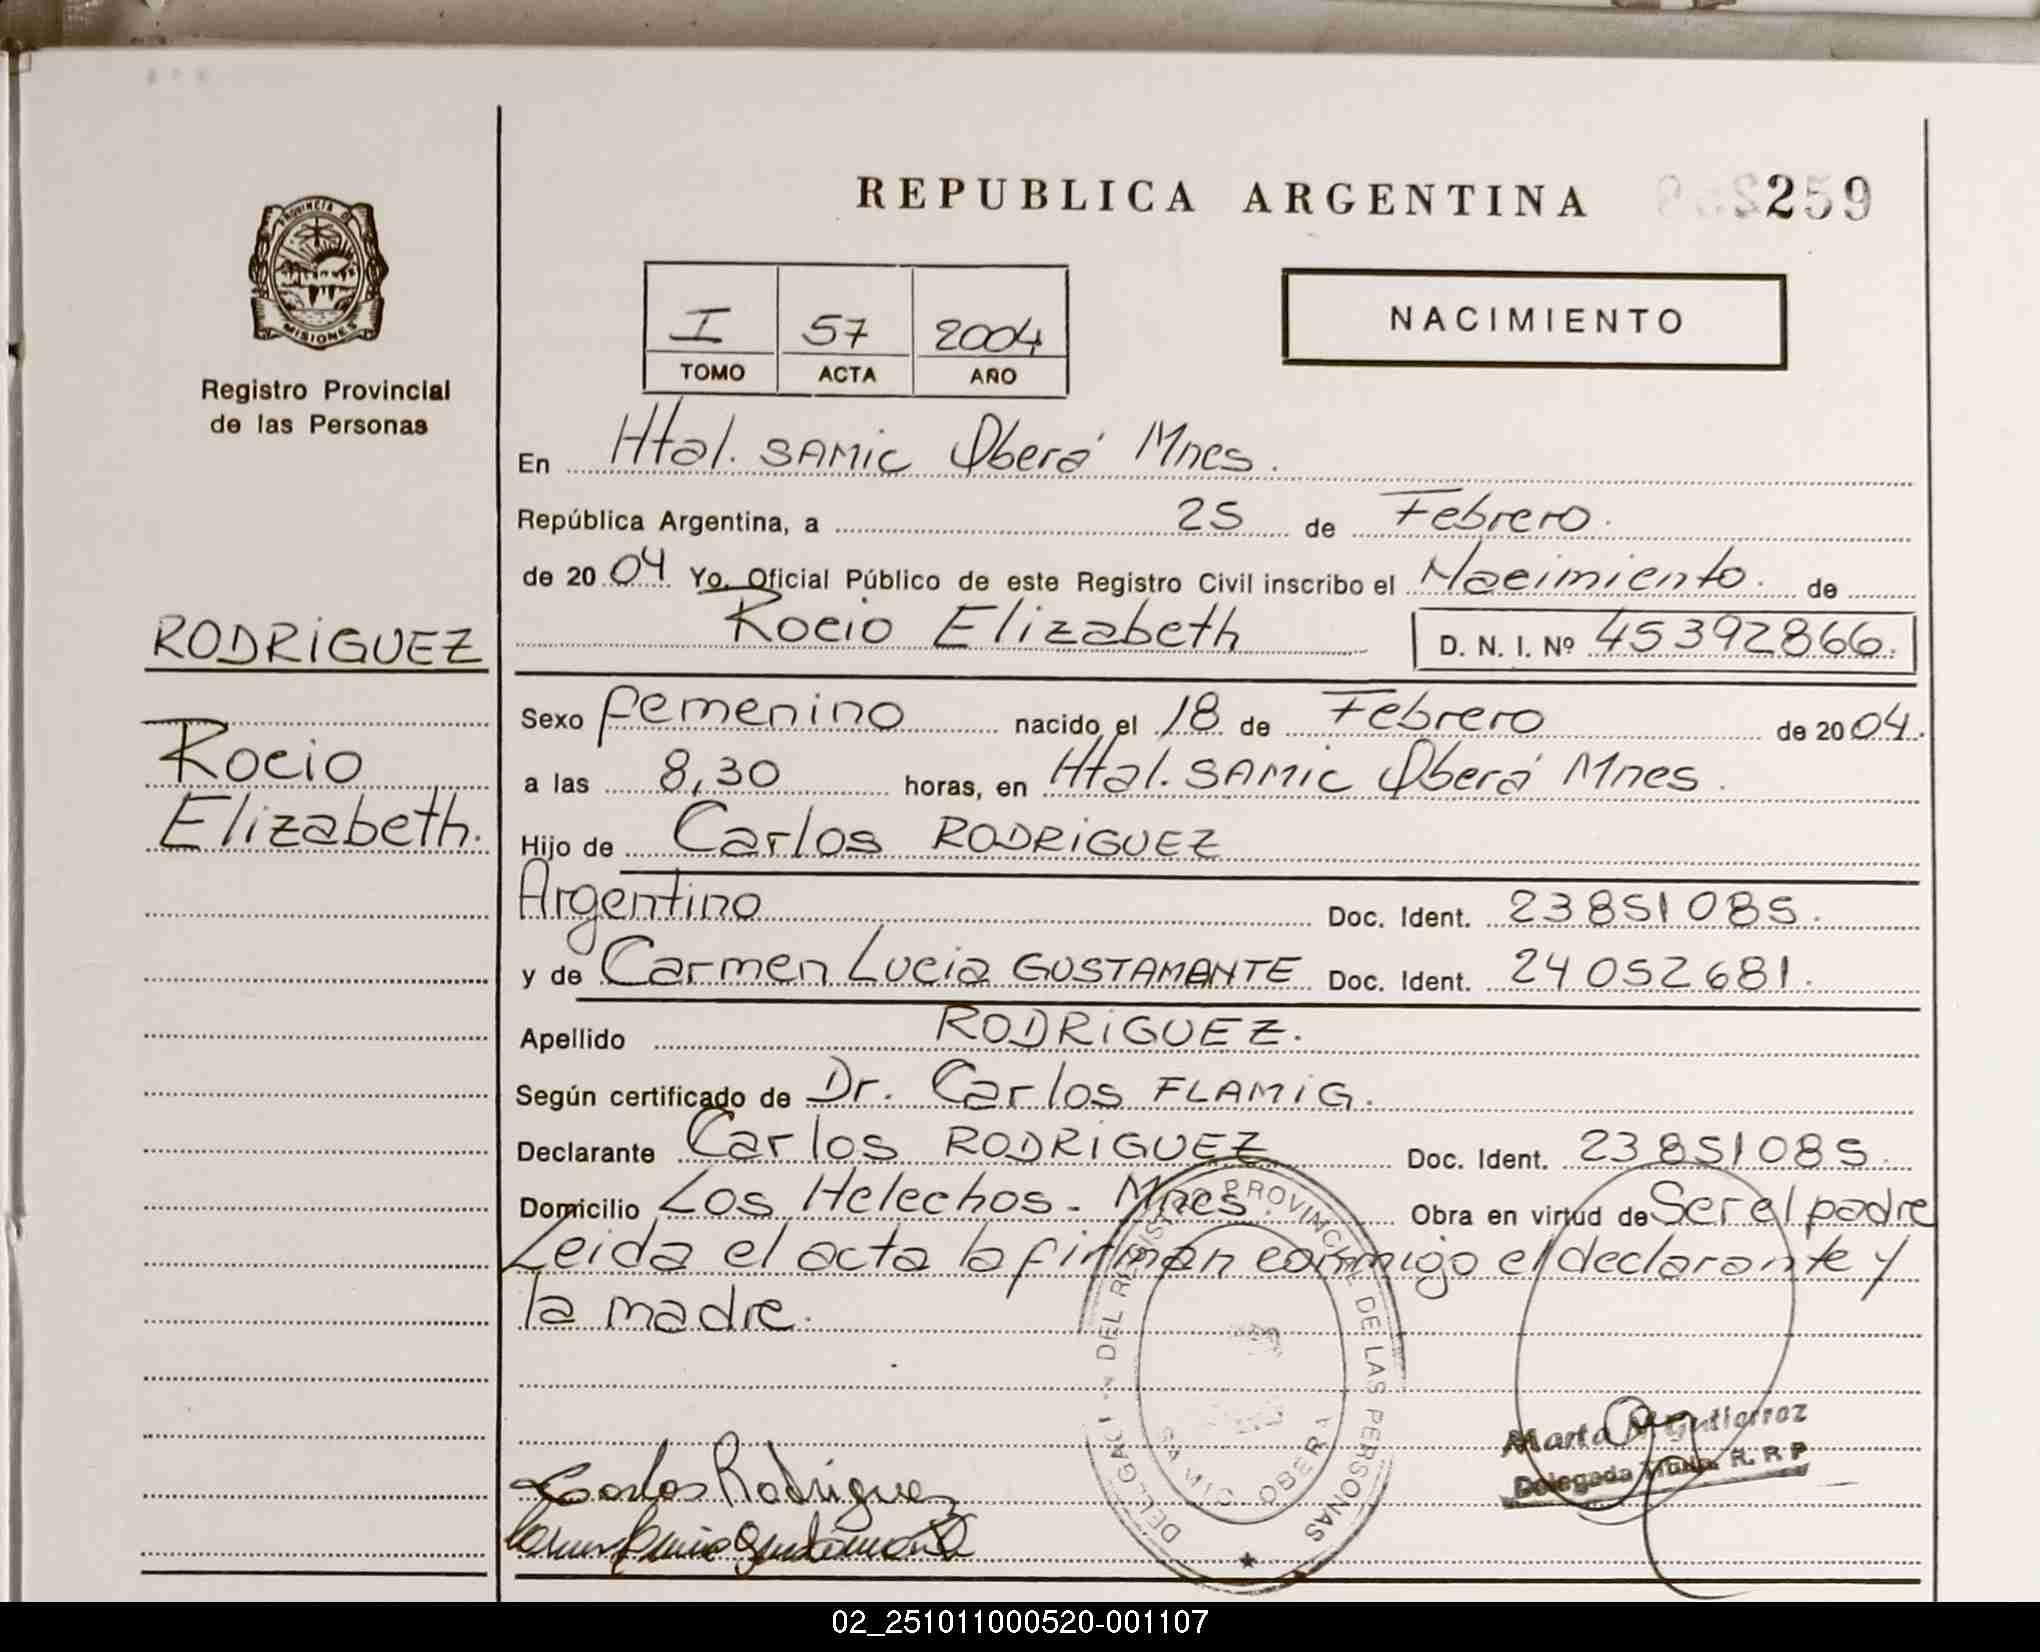 REPUBLICA ARGENTINA
259
PROVINCIA DE
MISIONES
Registro Provincial
de las Personas
I 57 2004
TOMO ACTA AÑO
NACIMIENTO
En Htal. SAMIC Oberá Mnes.
República Argentina, a 25 de Febrero.
de 2004 Yo, Oficial Público de este Registro Civil inscribo el Nacimiento. de
Rocio Elizabeth D. N. I. Nº 45392866.
RODRIGUEZ
Rocio
Elizabeth.
Sexo femenino nacido el 18 de Febrero de 2004.
a las 8,30 horas, en Htal. SAMIC Oberá Mnes.
Hijo de Carlos RODRIGUEZ
Argentino Doc. Ident. 23851085.
y de Carmen Lucia GUSTAMANTE Doc. Ident. 24052681.
Apellido RODRIGUEZ.
Según certificado de Dr. Carlos FLAMIG.
Declarante Carlos RODRIGUEZ Doc. Ident. 23851085.
Domicilio Los Helechos - Mnes. Obra en virtud de Ser el padre
Leida el acta la firman conmigo el declarante y
la madre.
DEL REGISTRO PROVINCIAL DE LAS PERSONAS
SAMIC OBERA
Carlos Rodriguez
Marta M Gutierrez
Delegada R. R. P
02_251011000520-001107